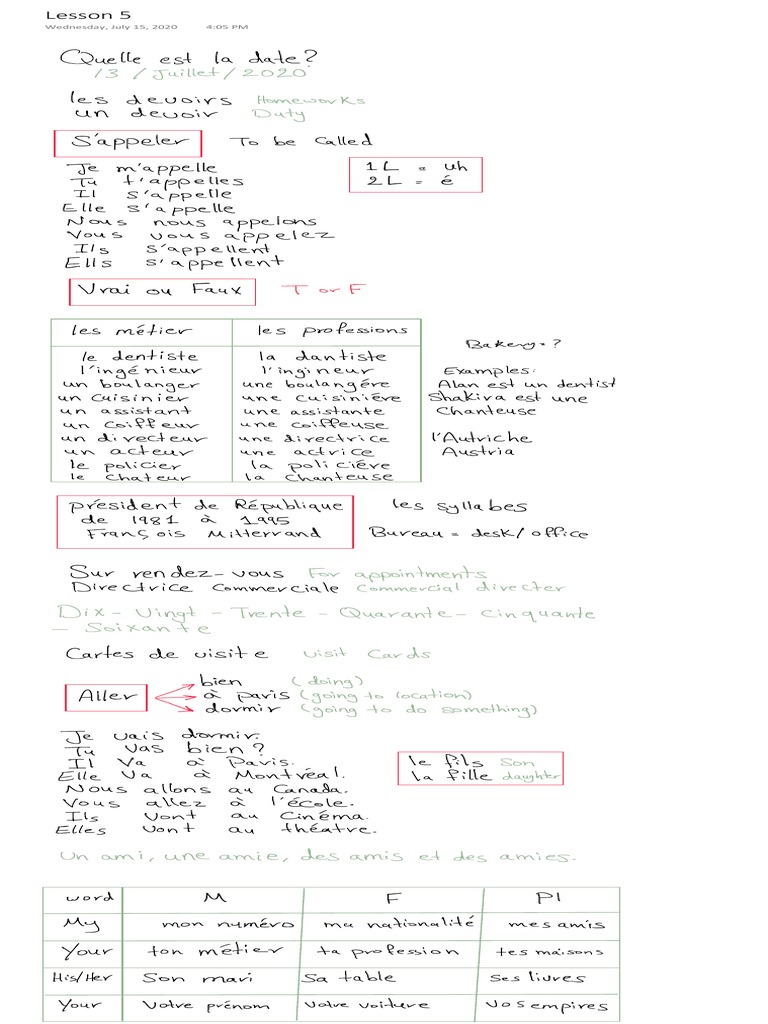 Lesson 5
Wednesday, July 15, 2020 4:05 PM
Quelle est la date?
13 / Juillet / 2020
les devoirs Homeworks
un devoir Duty
S'appeler To be Called
Je m'appelle
1 L = uh
Tu t'appelles
2 L = é
Il s'appelle
Elle s'appelle
Nous nous appelons
Vous vous appelez
Ils s'appellent
Ells s'appellent
Vrai ou Faux T or F
les métier les professions
Bakery = ?
le dentiste la dantiste
l'ingénieur l'ingineur Examples:
un boulanger une boulangére Alan est un dentist
un cuisinier une cuisiniére Shakira est une
un assistant une assistante Chanteuse
un coiffeur une coiffeuse
un directeur une directrice l'Autriche
un acteur une actrice Austria
le policier la policiére
le chateur la chanteuse
président de République les syllabes
de 1981 à 1995
François Mitterrand Bureau = desk / office
Sur rendez-vous For appointments
Directrice Commerciale Commercial directer
Dix - Vingt - Trente - Quarante - cinquante
- Soixante
Cartes de visite visit Cards
bien (doing)
Aller à paris (going to location)
dormir (going to do something)
Je vais dormir.
Tu vas bien?
Il Va à Paris.
le fils Son
Elle Va à Montréal.
la fille daughter
Nous allons au Canada.
Vous allez à l'école.
Ils vont au Cinéma.
Elles vont au théatre.
Un ami, une amie, des amis et des amies.
word M F Pl
My mon numéro ma nationalité mes amis
Your ton métier ta profession tes maisons
His/Her Son mari Sa table Ses livres
Your Votre prénom Votre voiture Vos empires